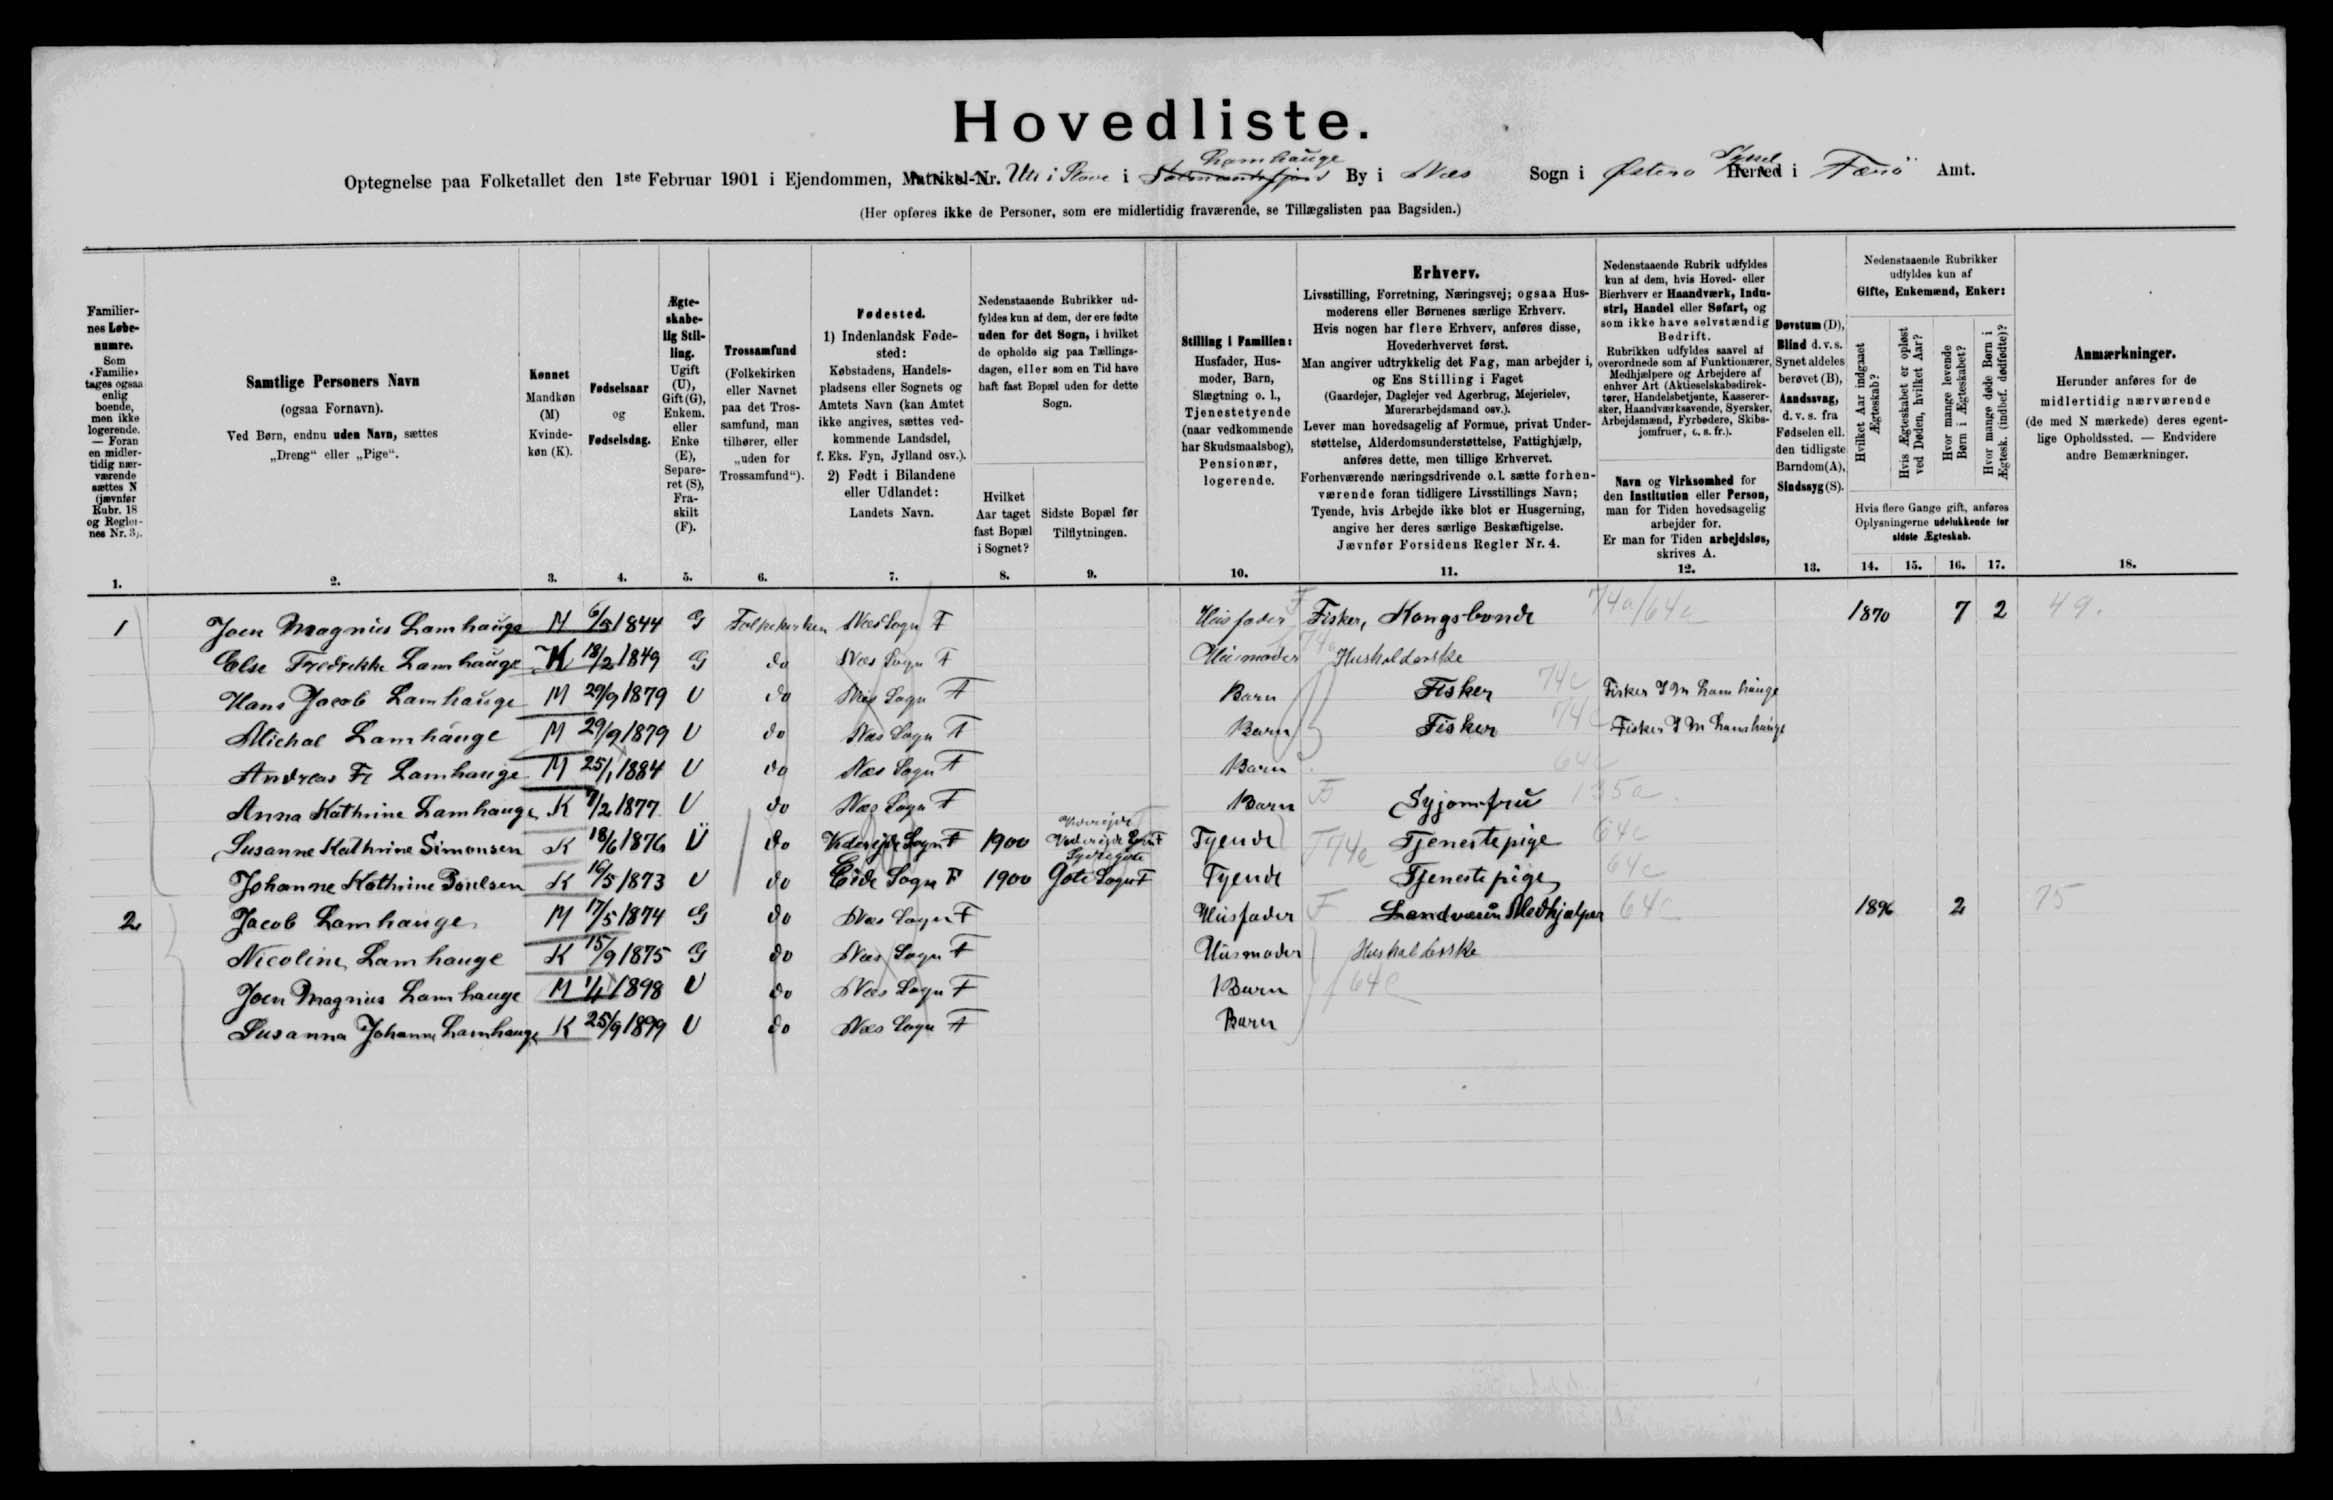 Hovedliste.
Optegnelse paa Folketallet den 1ste Februar 1901 i Ejendommen, Matrikel-Nr. Uti i Stove i Lamhauge By i Næs Sogn i Østerø Syssel Herred i Færø Amt.
(Her opføres ikke de Personer, som ere midlertidig fraværende, se Tillægslisten paa Bagsiden.)
Familier-
nes Løbe-
numre.
Som
«Familie»
tages ogsaa
enlig
boende,
men ikke
logerende.
— Foran
en midler-
tidig nær-
værende
sættes N
(jævnfør
Rubr. 18
og Regler-
nes Nr. 3).
1.
Samtlige Personers Navn
(ogsaa Fornavn).
Ved Børn, endnu uden Navn, sættes
„Dreng“ eller „Pige“.
2.
Kønnet
Mandkøn
(M)
Kvinde-
køn (K).
3.
Fødselsaar
og
Fødselsdag.
4.
Ægte-
skabe-
lig Stil-
ling.
Ugift
(U),
Gift (G),
Enkem.
eller
Enke
(E),
Separe-
ret (S),
Fra-
skilt
(F).
5.
Trossamfund
(Folkekirken
eller Navnet
paa det Tros-
samfund, man
tilhører, eller
„uden for
Trossamfund“).
6.
Fødested.
1) Indenlandsk Føde-
sted:
Købstadens, Handels-
pladsens eller Sognets og
Amtets Navn (kan Amtet
ikke angives, sættes ved-
kommende Landsdel,
f. Eks. Fyn, Jylland osv.).
2) Født i Bilandene
eller Udlandet:
Landets Navn.
7.
Nedenstaaende Rubrikker ud-
fyldes kun af dem, der ere fødte
uden for det Sogn, i hvilket
de opholde sig paa Tællings-
dagen, eller som en Tid have
haft fast Bopæl uden for dette
Sogn.
Hvilket
Aar taget
fast Bopæl
i Sognet?
8.
Sidste Bopæl før
Tilflytningen.
9.
Stilling i Familien:
Husfader, Hus-
moder, Barn,
Slægtning o. l.,
Tjenestetyende
(naar vedkommende
har Skudsmaalsbog),
Pensionær,
logerende.
10.
Erhverv.
Livsstilling, Forretning, Næringsvej; ogsaa Hus-
moderens eller Børnenes særlige Erhverv.
Hvis nogen har flere Erhverv, anføres disse,
Hovederhvervet først.
Man angiver udtrykkelig det Fag, man arbejder i,
og Ens Stilling i Faget
(Gaardejer, Daglejer ved Agerbrug, Mejerielev,
Murerarbejdsmand osv.).
Lever man hovedsagelig af Formue, privat Under-
støttelse, Alderdomsunderstøttelse, Fattighjælp,
anføres dette, men tillige Erhvervet.
Forhenværende næringsdrivende o. l. sætte forhen-
værende foran tidligere Livsstillings Navn;
Tyende, hvis Arbejde ikke blot er Husgerning,
angive her deres særlige Beskæftigelse.
Jævnfør Forsidens Regler Nr. 4.
11.
Nedenstaaende Rubrik udfyldes
kun af dem, hvis Hoved- eller
Bierhverv er Haandværk, Indu-
stri, Handel eller Søfart, og
som ikke have selvstændig
Bedrift.
Rubrikken udfyldes saavel af
overordnede som af Funktionærer,
Medhjælpere og Arbejdere af
enhver Art (Aktieselskabsdirek-
tører, Handelsbetjente, Kasserer-
sker, Haandværkssvende, Syersker,
Arbejdsmænd, Fyrbødere, Skibs-
jomfruer, o. s. fr.).
Navn og Virksomhed for
den Institution eller Person,
man for Tiden hovedsagelig
arbejder for.
Er man for Tiden arbejdsløs,
skrives A.
12.
Døvstum (D),
Blind d. v. s.
Synet aldeles
berøvet (B),
Aandssvag,
d. v. s. fra
Fødselen ell.
den tidligste
Barndom (A),
Sindssyg (S).
13.
Nedenstaaende Rubrikker
udfyldes kun af
Gifte, Enkemænd, Enker:
Hvilket Aar indgaaet
Ægteskab?
Hvis Ægteskabet er opløst
ved Døden, hvilket Aar?
Hvor mange levende
Børn i Ægteskabet?
Hvor mange døde Børn i
Ægtesk. (indbef. dødfødte)?
Hvis flere Gange gift, anføres
Oplysningerne udelukkende for
sidste Ægteskab.
14. 15. 16. 17.
Anmærkninger.
Herunder anføres for de
midlertidig nærværende
(de med N mærkede) deres egent-
lige Opholdssted. — Endvidere
andre Bemærkninger.
18.
1 Joen Magnus Lamhauge M 6/5 1844 G Folkekirken Næs Sogn F Husfader Fisker, Kongsbonde 74a/64c 1870 7 2 49.
Else Fredrikke Lamhauge K 18/2 1849 G do Næs Sogn F Husmoder Husholderske
Hans Jacob Lamhauge M 29/9 1879 U do Næs Sogn F Barn Fisker 74c Fisker J M Lamhauge
Michal Lamhauge M 29/9 1879 U do Næs Sogn F Barn Fisker 74c Fisker J M Lamhauge
Andreas Fr Lamhauge M 25/1 1884 U do Næs Sogn F Barn 64c
Anna Kathrine Lamhauge K 7/2 1877 U do Næs Sogn F Barn F Syjomfru 135a
Susanne Kathrine Simonsen K 18/6 1876 U do Viderejde Sogn F 1900 Viderejde Viderejde Sogn F Tyende F 74c Tjenestepige 64c
Johanne Kathrine Poulsen K 16/5 1873 U do Eide Sogn F 1900 Sydregøte Gøte Sogn F Tyende Tjenestepige 64c
2 Jacob Lamhauge M 17/5 1874 G do Næs Sogn F Husfader F Landvæsen Medhjælper 64c 1896 2 75
Nicoline Lamhauge K 15/9 1875 G do Næs Sogn F Husmoder Husholderske
Joen Magnus Lamhauge M 1/1 1898 U do Næs Sogn F Barn 64c
Susanna Johanne Lamhauge K 25/9 1899 U do Næs Sogn F Barn